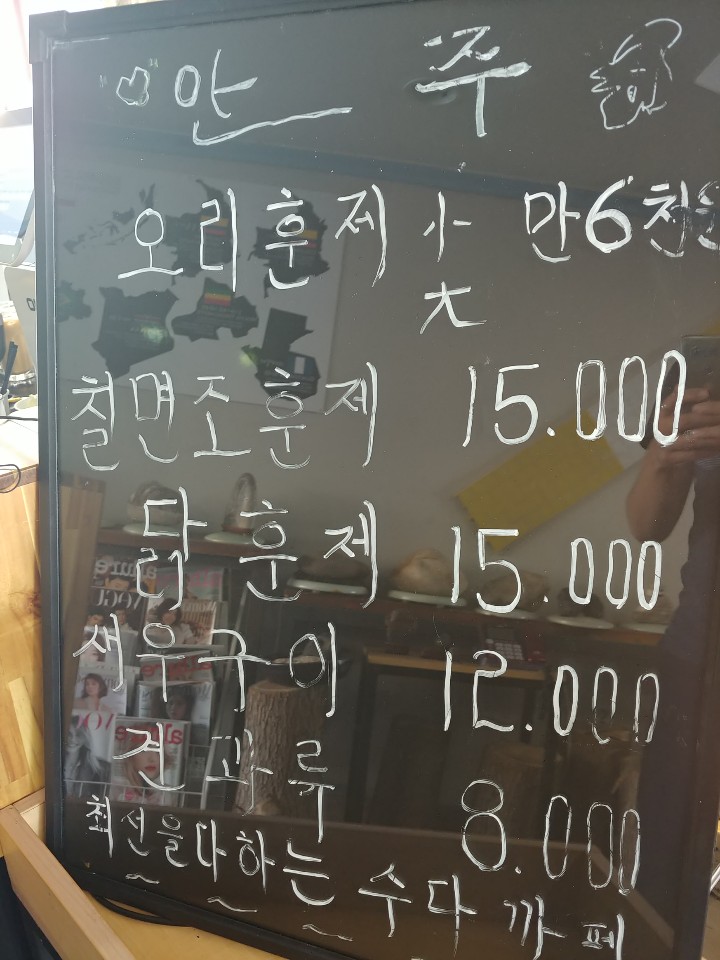 안 주
오리훈제 小 만6천원
大
칠면조훈제 15.000
닭훈제 15.000
새우구이 12.000
견과류 8.000
최선을다하는 수다 까페